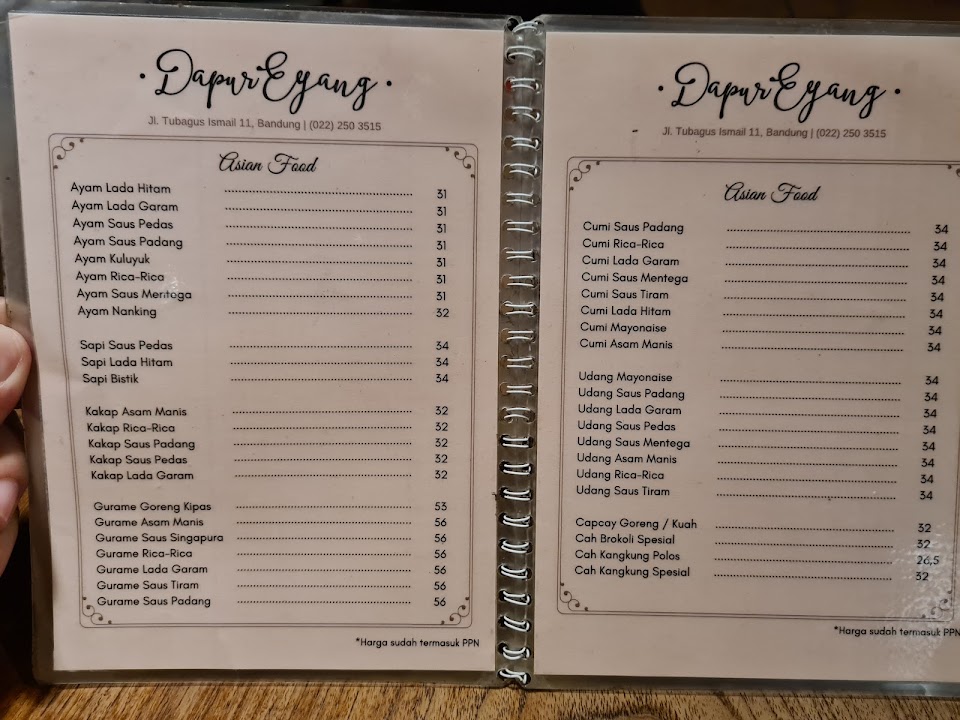 Dapur Eyang
Jl. Tubagus Ismail 11, Bandung | (022) 250 3515
Asian Food
Ayam Lada Hitam 31
Ayam Lada Garam 31
Ayam Saus Pedas 31
Ayam Saus Padang 31
Ayam Kuluyuk 31
Ayam Rica-Rica 31
Ayam Saus Mentega 31
Ayam Nanking 32
Sapi Saus Pedas 34
Sapi Lada Hitam 34
Sapi Bistik 34
Kakap Asam Manis 32
Kakap Rica-Rica 32
Kakap Saus Padang 32
Kakap Saus Pedas 32
Kakap Lada Garam 32
Gurame Goreng Kipas 53
Gurame Asam Manis 56
Gurame Saus Singapura 56
Gurame Rica-Rica 56
Gurame Lada Garam 56
Gurame Saus Tiram 56
Gurame Saus Padang 56
*Harga sudah termasuk PPN
Dapur Eyang
Jl. Tubagus Ismail 11, Bandung | (022) 250 3515
Asian Food
Cumi Saus Padang 34
Cumi Rica-Rica 34
Cumi Lada Garam 34
Cumi Saus Mentega 34
Cumi Saus Tiram 34
Cumi Lada Hitam 34
Cumi Mayonaise 34
Cumi Asam Manis 34
Udang Mayonaise 34
Udang Saus Padang 34
Udang Lada Garam 34
Udang Saus Pedas 34
Udang Saus Mentega 34
Udang Asam Manis 34
Udang Rica-Rica 34
Udang Saus Tiram 34
Capcay Goreng / Kuah 32
Cah Brokoli Spesial 32
Cah Kangkung Polos 26,5
Cah Kangkung Spesial 32
*Harga sudah termasuk PPN